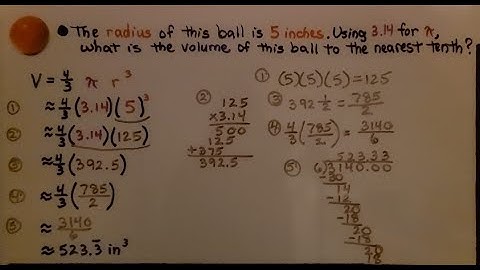 The radius of this ball is 5 inches. Using 3.14 for π,
what is the volume of this ball to the nearest tenth?
V = 4/3 π r³
① ≈ 4/3 (3.14)(5)³
② ≈ 4/3 (3.14)(125)
③ ≈ 4/3 (392.5)
④ ≈ 4/3 (785/2)
⑤ ≈ 3140/6
≈ 523.3̅ in³
②
125
x3.14
500
125
+375
392.5
① (5)(5)(5) = 125
③ 392 1/2 = 785/2
④ 4/3 (785/2) = 3140/6
⑤
523.33
6)3140.00
-30
14
-12
20
-18
20
-18
20
18